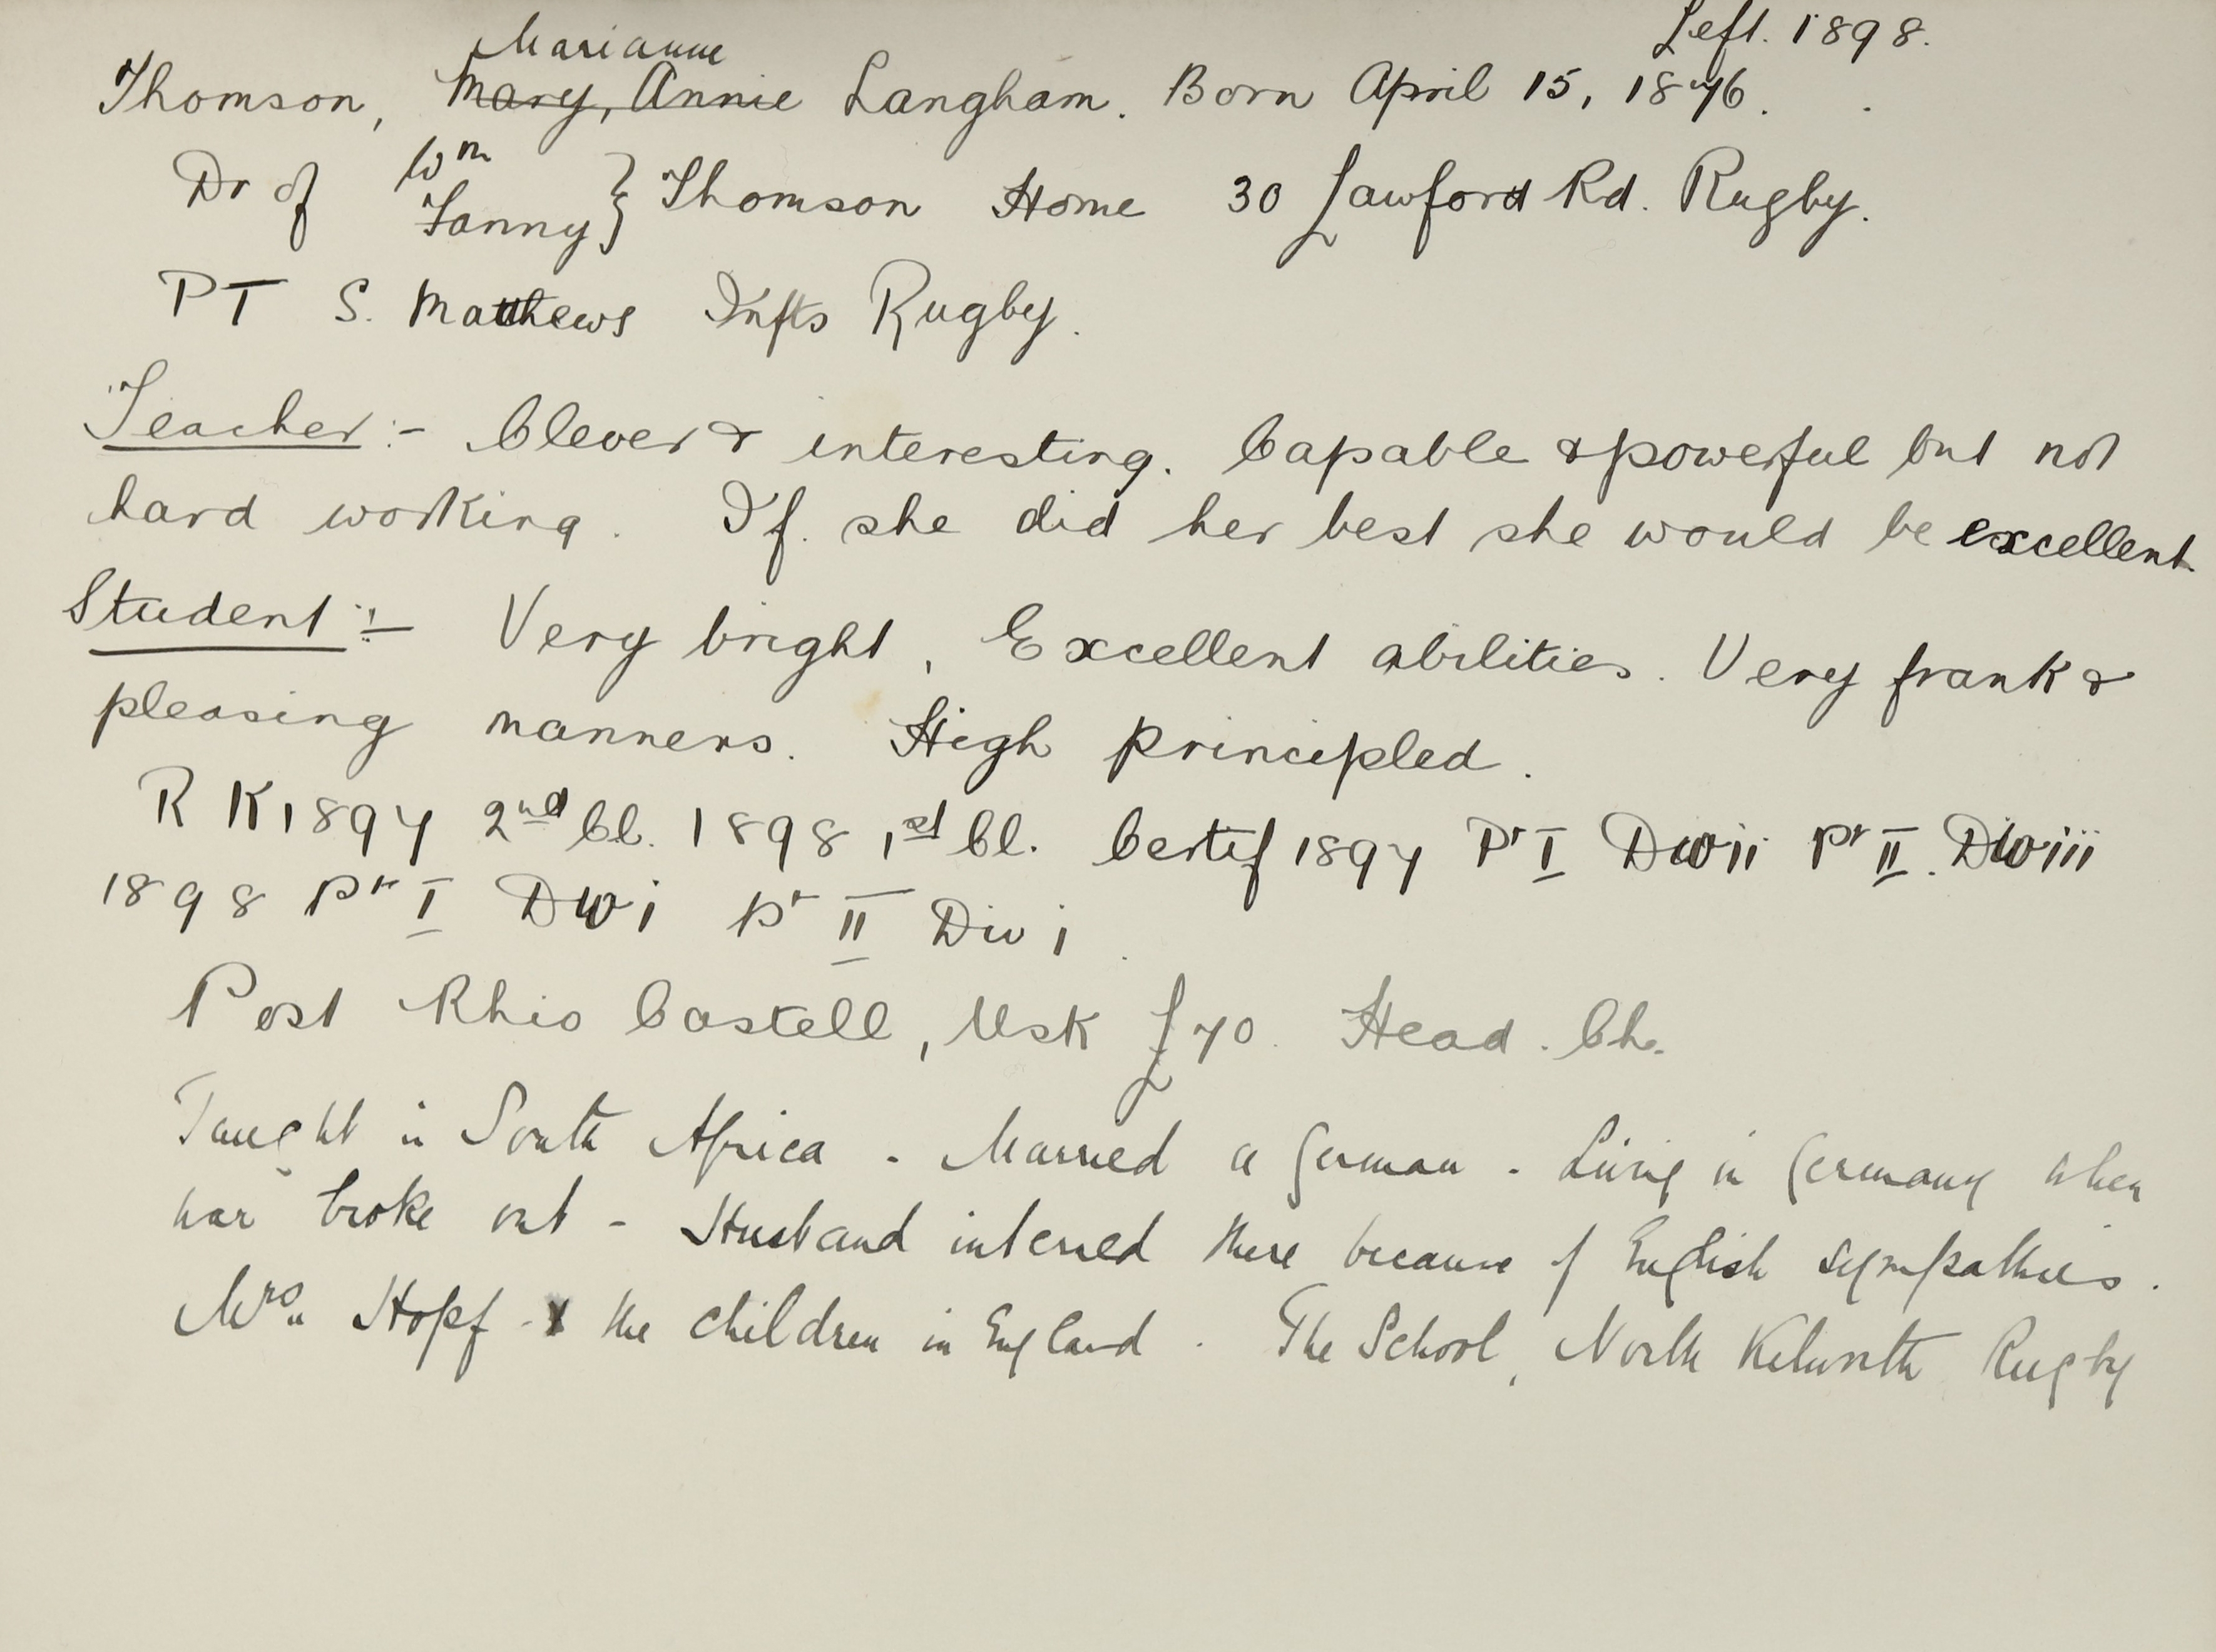 Left. 1898.
Marianne
Thomson, Mary, Annie Langham. Born April 15, 1876.
Dr of Wm Fanny } Thomson Home 30 Lawford Rd. Rugby.
PT S. Matthews Infts Rugby.
Teacher:- Clever & interesting. Capable & powerful but not
hard working. If she did her best she would be excellent.
Student:- Very bright, Excellent abilities. Very frank &
pleasing manners. High principled.
R K 1897 2nd Cl. 1898 1st Cl. Certif 1897 Pt I Div ii Pt II. Div iii
1898 Pt I Div i Pt II Div i.
Post Rhio Castell, Usk £70. Head. Ch.
Taught in South Africa - Married a German - Living in Germany when
war broke out - Husband interned there because of English sympathies.
Mrs. Hopf & the children in England. The School, North Kilworth Rugby